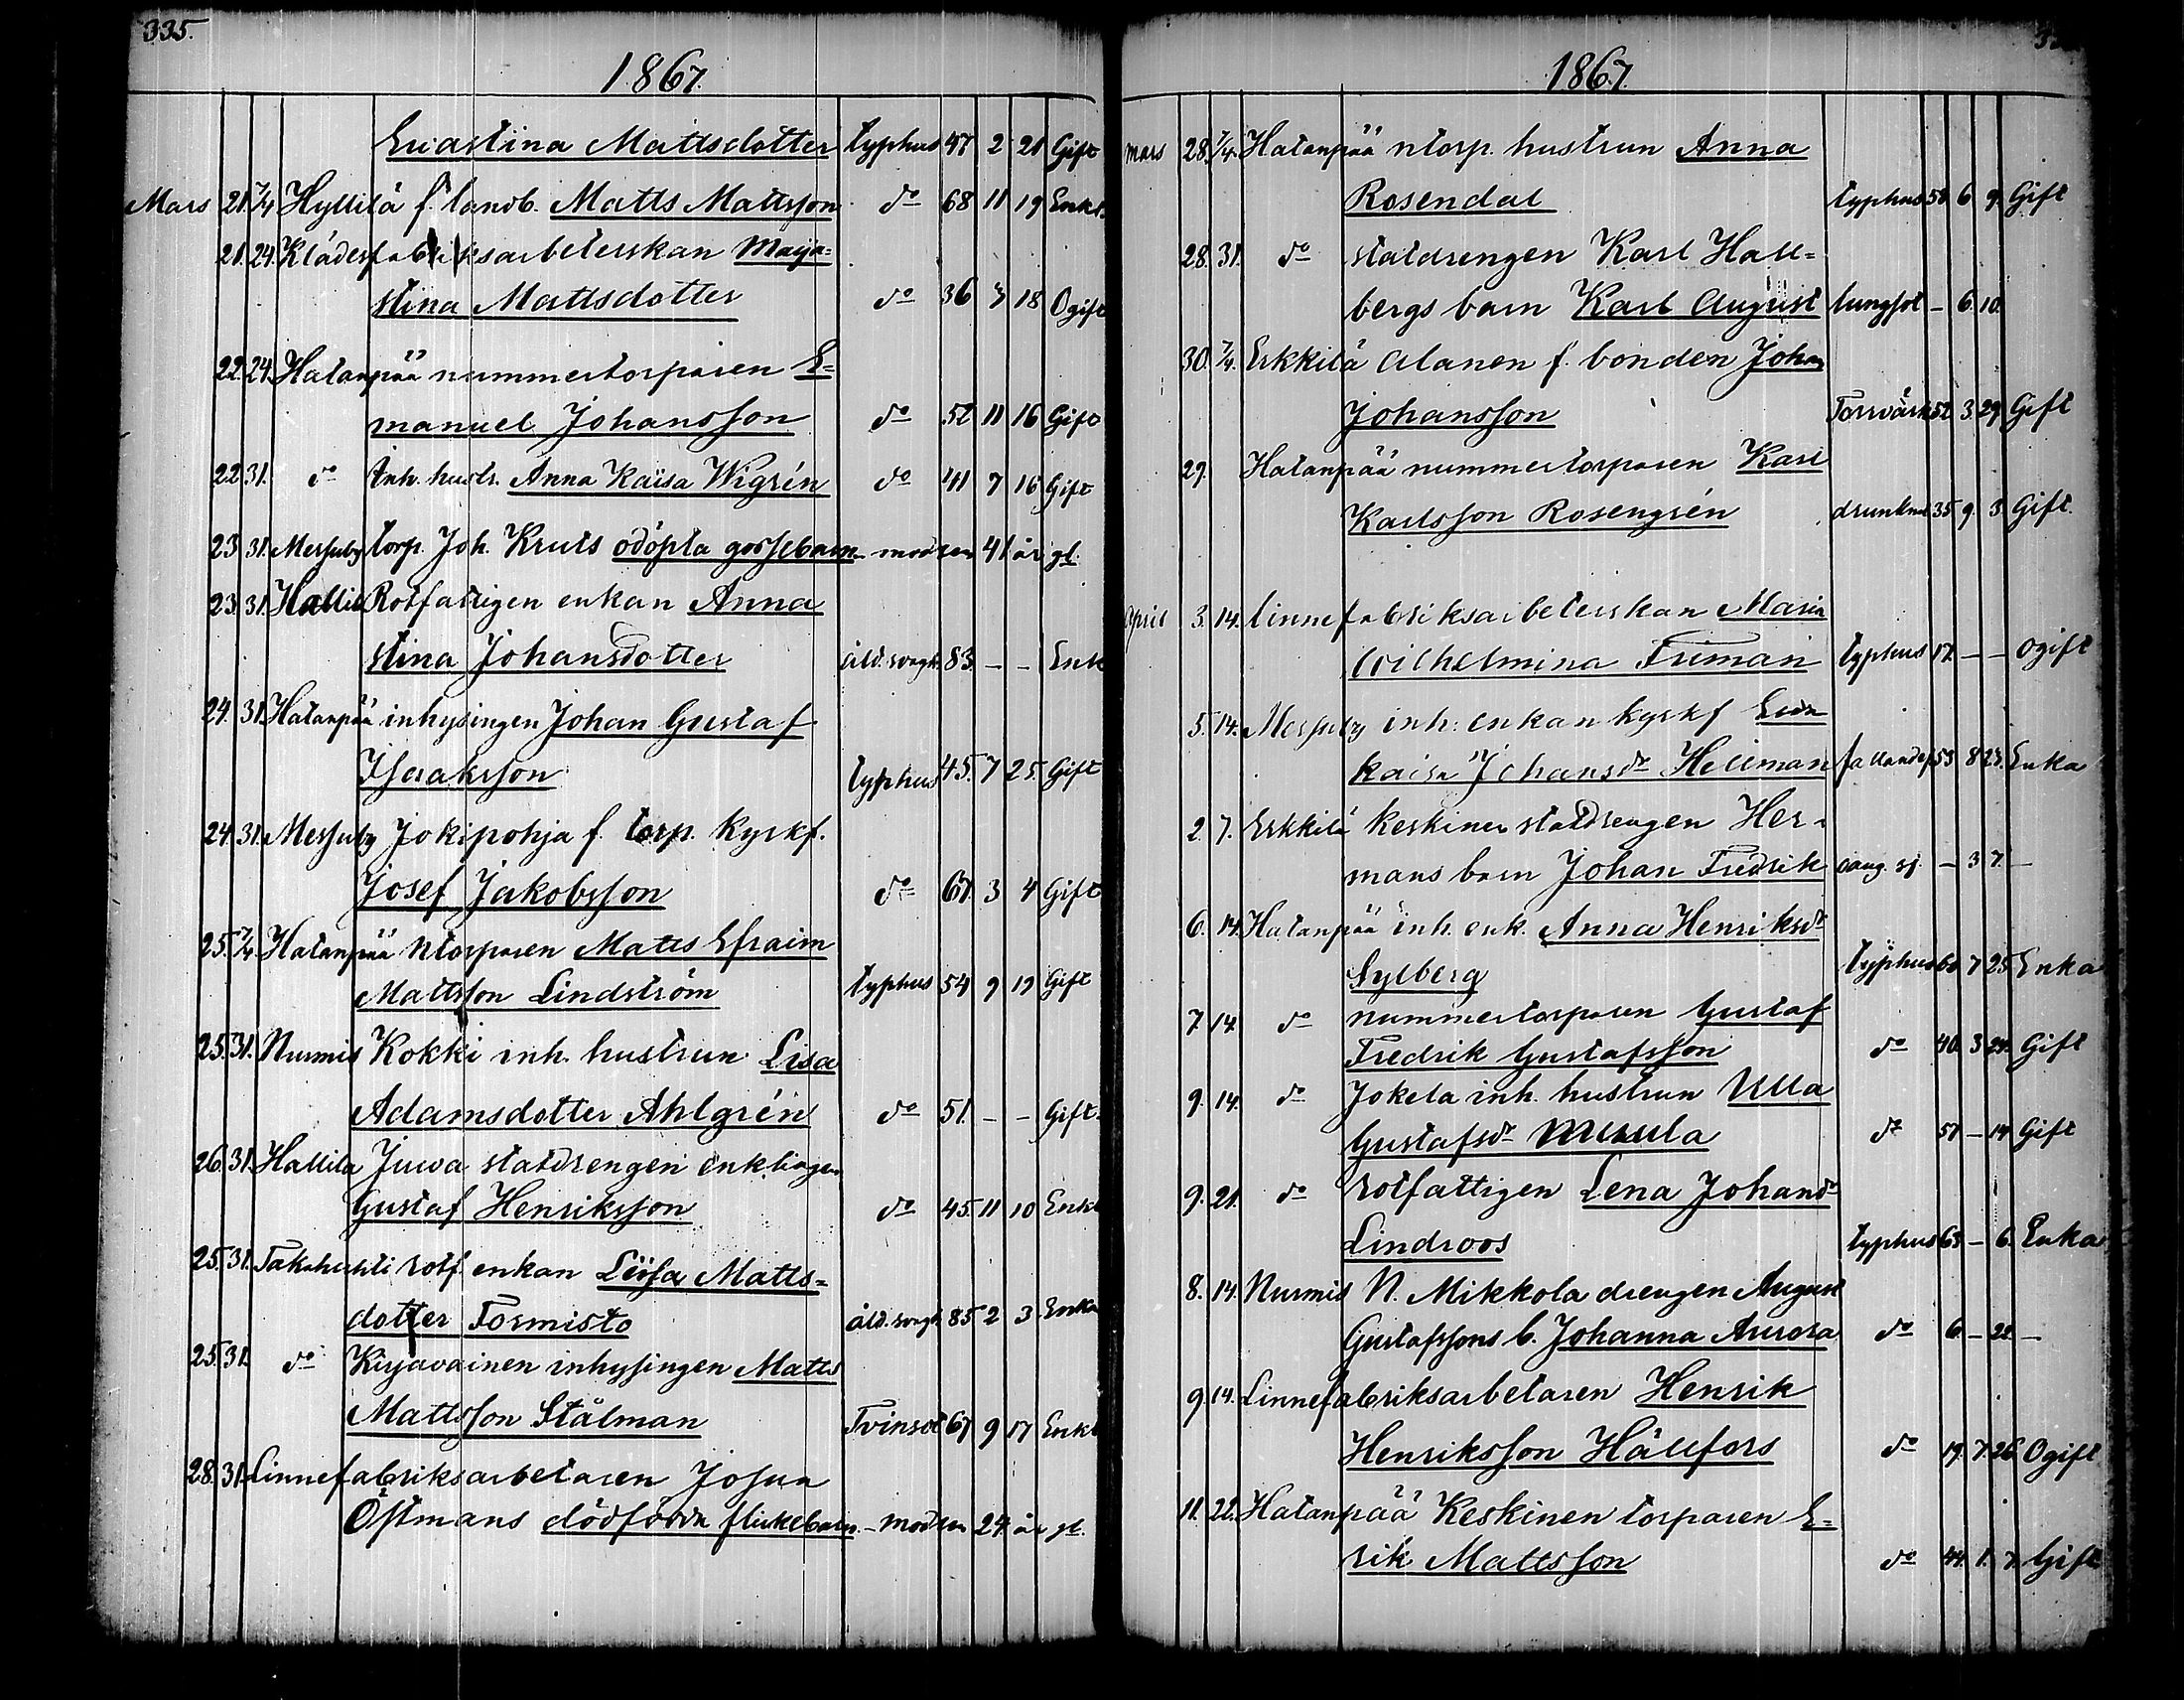 335.
1867.
Evastina Mattsdotter typhus 47 2 21 Gift
Mars 21. 7/4 Hyllilä f. landb. Matts Mattsson do 68 11 19 Enkl.
21. 24. Klädesfabriksarbeterskan Maja=
stina Mattsdotter do 36 3 18 Ogift
22. 24. Hatanpää nummertorparen E=
manuel Johansson do 52 11 16 Gift
22. 31. do Inh. hustr. Anna Kaisa Wigrén do 41 7 16 Gift
23. 31. Messuby torp. Joh. Kruts odöpta gossebarn – modren 41 år gl.
23. 31. Hallila Rotfattigen enkan Anna
stina Johansdotter åld.svagh. 83. – – Enk
24. 31. Hatanpää inhysingen Johan Gustaf
Isaaksson typhus 45. 7 25. Gift
24. 31. Messuby Jokipohja f. torp. kyrkf.
Josef Jakobsson do 67. 3 4 Gift
25. 7/4. Hatanpää Ntorparen Matts Efraim
Mattsson Lindström typhus 54 9 19 Gift
25. 31. Nurmis Kokki inh. hustrun Lisa
Adamsdotter Ahlgrén do 51. – – Gift.
26. 31. Hallila Juva statdrengen enklingen
Gustaf Henriksson do 45. 11 10 Enkl
25. 31. Takahuhti rotf. enkan Lovisa Matts=
dotter Tormisto åld.svagh. 85 2 3. Enka
25. 31. do Kirjavainen inhysingen Matts
Mattsson Stålman Tvinsot 67 9 17 Enkl
28. 31. Linnefabriksarbetaren Josua
Östmans dödfödda flickebarn. – modren 24 år gl.
1867.
Mars 28. 7/4. Hatanpää ntorp. hustrun Anna
Rosendal typhus 50 6 9. Gift
28. 31. do statdrengen Karl Hall=
bergs barn Karl August lungsot – 6. 10.
30. 7/4. Erkkilä Alanen f. bonden Johan
Johansson Torrvärk 52 3. 29. Gift
29. Hatanpää nummertorparen Karl
Karlsson Rosengrén drunknat 35 9. 3 Gift.
April 3. 14. Linnefabriksarbeterskan Maria
Wilhelmina Friman typhus 17. – – ogift
5. 14. Messuby inh. enkan kyrkf. Eva
Kaisa Johansdr Hellman fallandes. 53 8 23. Enka
2. 7. Erkkilä Keskinen statdrengen Her=
mans barn Johan Fredrik aang. sj. – 3 7. –
6. 14. Hatanpää inh. enk. Anna Henriksdr
Sylberg typhus 60 7 25 Enka
7. 14. do nummertorparen Gustaf
Fredrik Gustafsson do 40. 3 24. Gift
9. 14. do Jokela inh. hustrun Ulla
Gustafsdr do 51 – 14 Gift
9. 21. do rotfattigen Lena Johansdr
Lindroos typhus 63 – 6. Enka
8. 14. Nurmis N. Mikkola drengen August
Gustafssons b. Johanna Aurora do 6 – 22 –
9. 14. Linnefabriksarbetaren Henrik
Henriksson Hällfors do 19. 7. 26 Ogift
11. 22. Hatanpää Keskinen torparen E=
rik Mattsson do 44. 1. 7. Gift